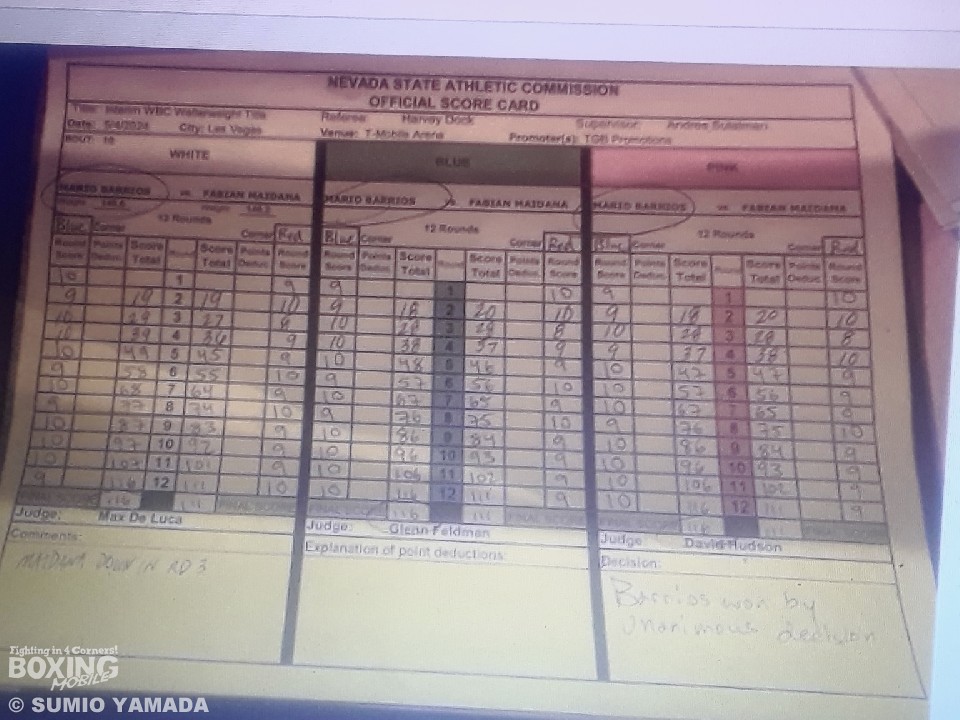 NEVADA STATE ATHLETIC COMMISSION
OFFICIAL SCORE CARD
Title: Interim WBC Welterweight Title Referee: Harvey Dock Supervisor:
Date: 5/4/2024 City: Las Vegas Venue: T-Mobile Arena Promoter(s): TGB Promotions
BOUT: 10
WHITE BLUE PINK
MARIO BARRIOS vs. FABIAN MAIDANA MARIO BARRIOS vs. FABIAN MAIDANA MARIO BARRIOS vs. FABIAN MAIDANA
12 Rounds 12 Rounds 12 Rounds
Blue Corner Corner Red Blue Corner Corner Red Blue Corner Corner Red
Round Score Points Deduc. Score Total Round Score Total Points Deduc. Round Score Round Score Points Deduc. Score Total Round Score Total Points Deduc. Round Score Round Score Points Deduc. Score Total Round Score Total Points Deduc. Round Score
10 1 9 9 1 10 9 1 10
9 19 2 19 10 9 18 2 20 10 9 18 2 20 10
10 29 3 27 8 10 28 3 28 8 10 28 3 28 8
10 39 4 36 9 10 38 4 37 9 9 37 4 38 10
10 49 5 45 9 10 48 5 46 9 10 47 5 47 9
9 58 6 55 10 9 57 6 56 10 10 57 6 56 9
10 68 7 64 9 10 67 7 65 9 10 67 7 65 9
9 77 8 74 10 9 76 8 75 10 9 76 8 75 10
10 87 9 83 9 10 86 9 84 9 10 86 9 84 9
10 97 10 92 9 10 96 10 93 9 10 96 10 93 9
10 107 11 101 9 10 106 11 102 9 10 106 11 102 9
9 116 12 111 10 10 116 12 111 9 10 116 12 111 9
FINAL SCORE 116 111 FINAL SCORE FINAL SCORE 116 111 FINAL SCORE FINAL SCORE 116 111 FINAL SCORE
Judge: Max De Luca Judge: Glenn Feldman Judge: David Hudson
Comments: Explanation of point deductions: Decision:
MAIDANA DOWN IN RD 3
Barrios won by
Unanimous decision
Fighting in 4 Corners!
BOXING
MOBILE
© SUMIO YAMADA